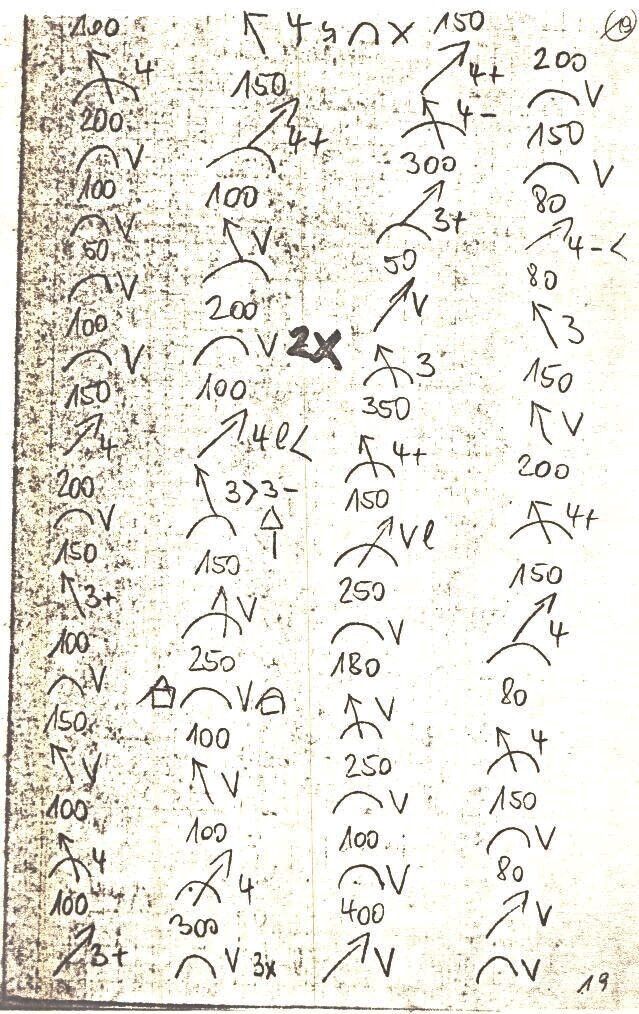 100
↖ 4
200
⌒ V
100
⌒ V
50
⌒ V
100
⌒ V
150
↗ 4
200
⌒ V
150
↖ 3+
100
⌒ V
150
↖ V
100
↖ 4
100
↗ 3+
↖ 4 ⌒ x
150
↗ 4+
100
↖ V
200
⌒ V 2X
100
↗ 4 l<
↖ 3>3-
150
↑ V
250
⌒ V
100
↖ V
100
↗ 4
300
⌒ V 3x
150
↗ 4+
↖ 4-
300
↗ 3+
50
↗ V
↖ 3
350
↖ 4+
150
↗ V l
250
⌒ V
180
↖ V
250
⌒ V
100
⌒ V
400
↗ V
200
⌒ V
150
⌒ V
80
↗ 4-<
80
↖ 3
150
↖ V
200
↖ 4+
150
↗ 4
80
↖ 4
150
⌒ V
80
↗ V
⌒ V
19